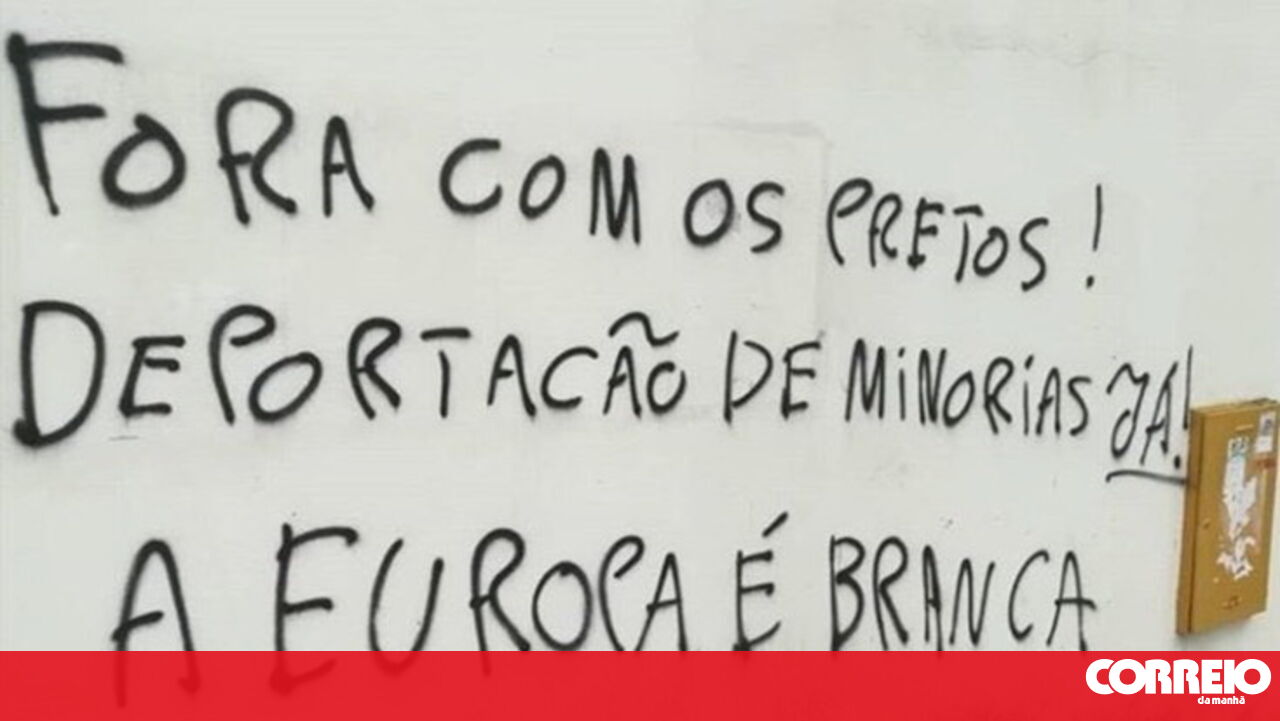 FORA COM OS PRETOS!
DEPORTACÃO DE MINORIAS JA!
A EUROPA É BRANCA
CORREIO
da manhã